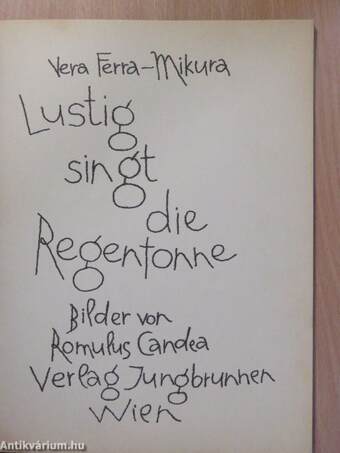 Vera Ferra-Mikura
Lustig
singt
die
Regentonne
Bilder von
Romulus Candea
Verlag Jungbrunnen
Wien
Antikvárium.hu